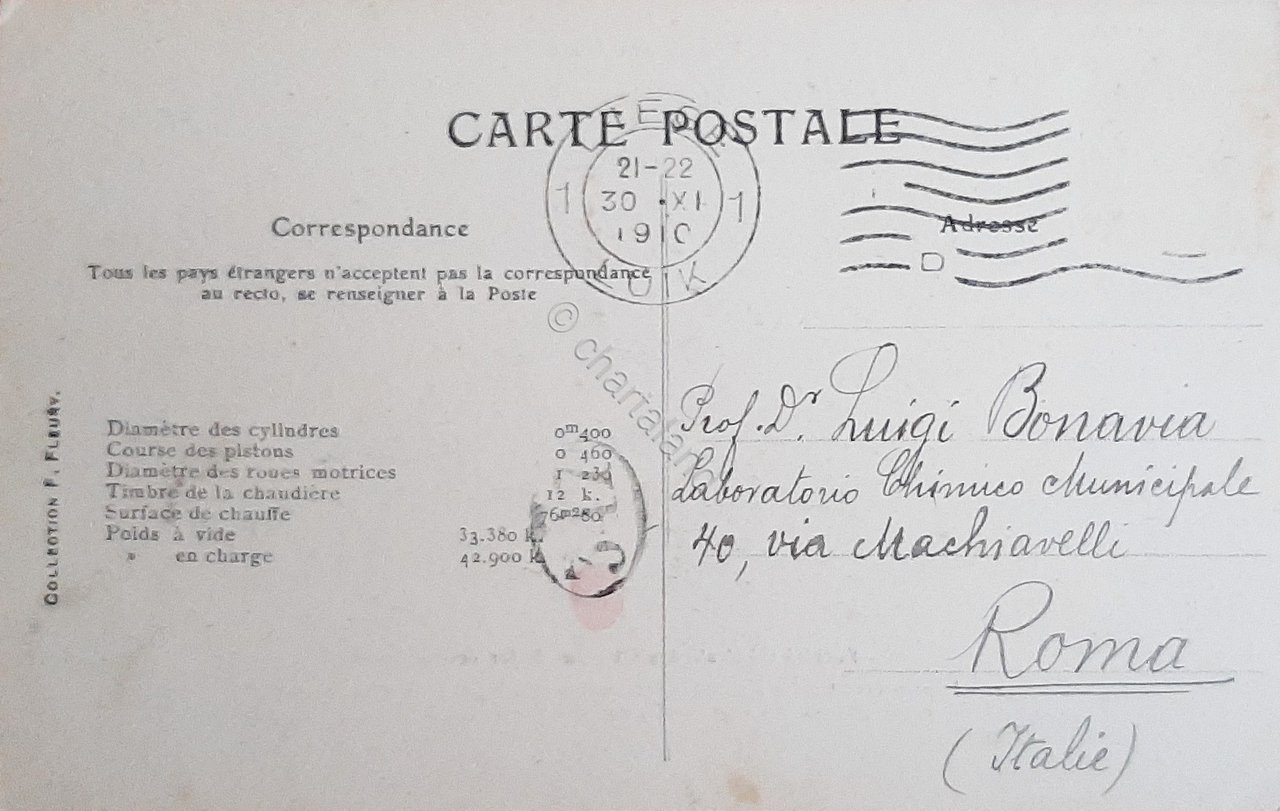 CARTE POSTALE
21-22
1 30 XI 1
LUIK
Correspondance
Adresse
D
Tous les pays étrangers n'acceptent pas la correspondance
au recto, se renseigner à la Poste
© chartaland
COLLECTION F. FLEURY.
Diamètre des cylindres 0m400
Course des pistons 0 460
Diamètre des roues motrices
Timbre de la chaudière 12 k.
Surface de chauffe 76m280
Poids à vide 33.380 k.
» en charge 42.900 k.
Prof. Dr. Luigi Bonavia
Laboratorio Chimico Municipale
40, via Machiavelli
Roma
(Italie)